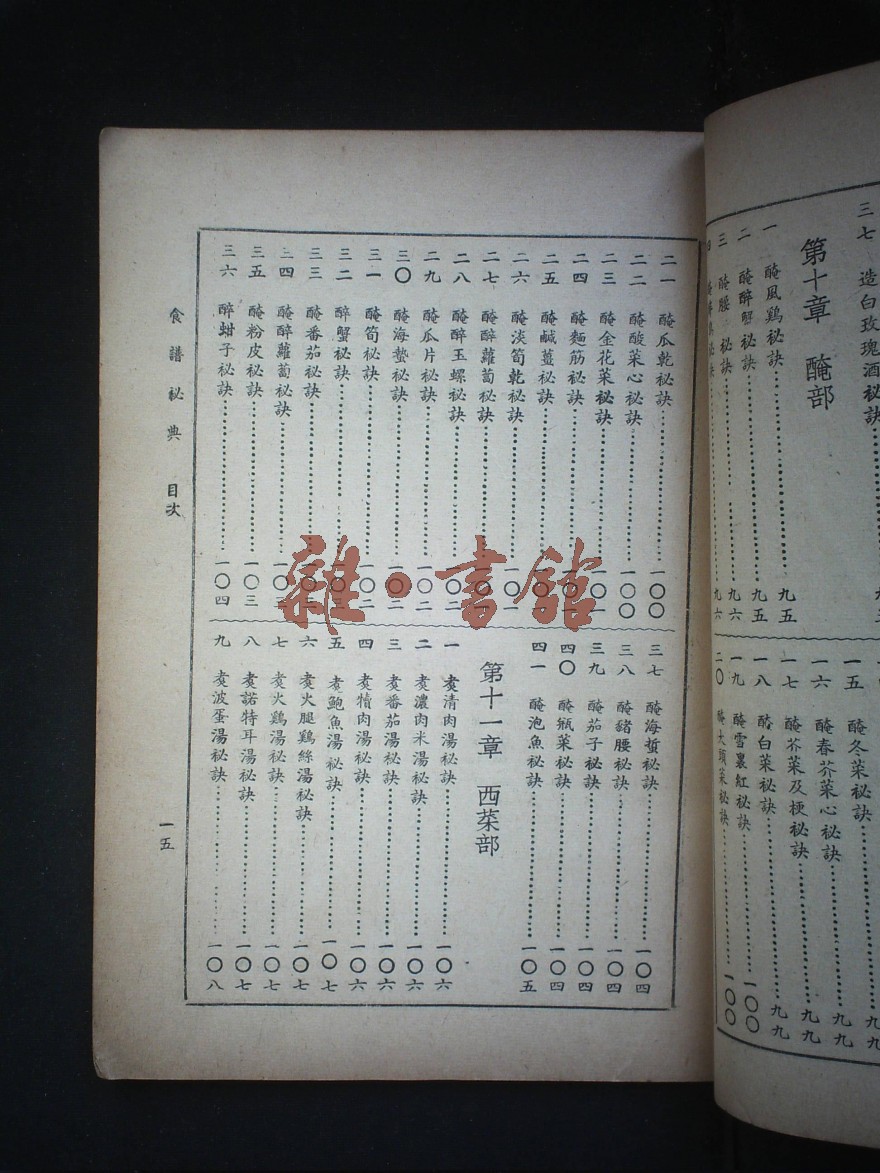 三七 造白玫瑰酒秘訣
第十章 醃部
一 醃風鷄秘訣 九五
二 醃醉蟹秘訣 九五
三 醃腰秘訣 九六
九六
一五 醃冬菜秘訣 九九
一六 醃春芥菜心秘訣 九九
一七 醃芥菜及梗秘訣 九九
一八 醃白菜秘訣 九九
一九 醃雪裏紅秘訣 一〇〇
二〇 醃大頭菜秘訣 一〇〇
二一 醃瓜乾秘訣 一〇〇
二二 醃酸菜心秘訣 一〇〇
二三 醃金花菜秘訣 一〇一
二四 醃麵筋秘訣
二五 醃鹹薑秘訣
二六 醃淡筍乾秘訣
二七 醃醉蘿蔔秘訣
二八 醃醉玉螺秘訣 一〇二
二九 醃瓜片秘訣 一〇二
三〇 醃海蟄秘訣 一〇二
三一 醃筍秘訣 一〇二
三二 醉蟹秘訣 一〇三
三三 醃番茄秘訣 一〇三
三四 醃醉蘿蔔秘訣 一〇三
三五 醃粉皮秘訣 一〇三
三六 醉蚶子秘訣 一〇四
三七 醃海蜇秘訣 一〇四
三八 醃豬腰秘訣 一〇四
三九 醃茄子秘訣 一〇四
四〇 醃瓶菜秘訣 一〇四
四一 醃泡魚秘訣 一〇五
第十一章 西菜部
一 煑清肉湯秘訣 一〇六
二 煑濃肉米湯秘訣 一〇六
三 煑番茄湯秘訣 一〇六
四 煑犢肉湯秘訣 一〇六
五 煑鮑魚湯秘訣 一〇七
六 煑火腿鷄絲湯秘訣 一〇七
七 煑火鷄湯秘訣 一〇七
八 煑諾特耳湯秘訣 一〇七
九 煑波蛋湯秘訣 一〇八
食譜秘典 目次 一五
雜·書館